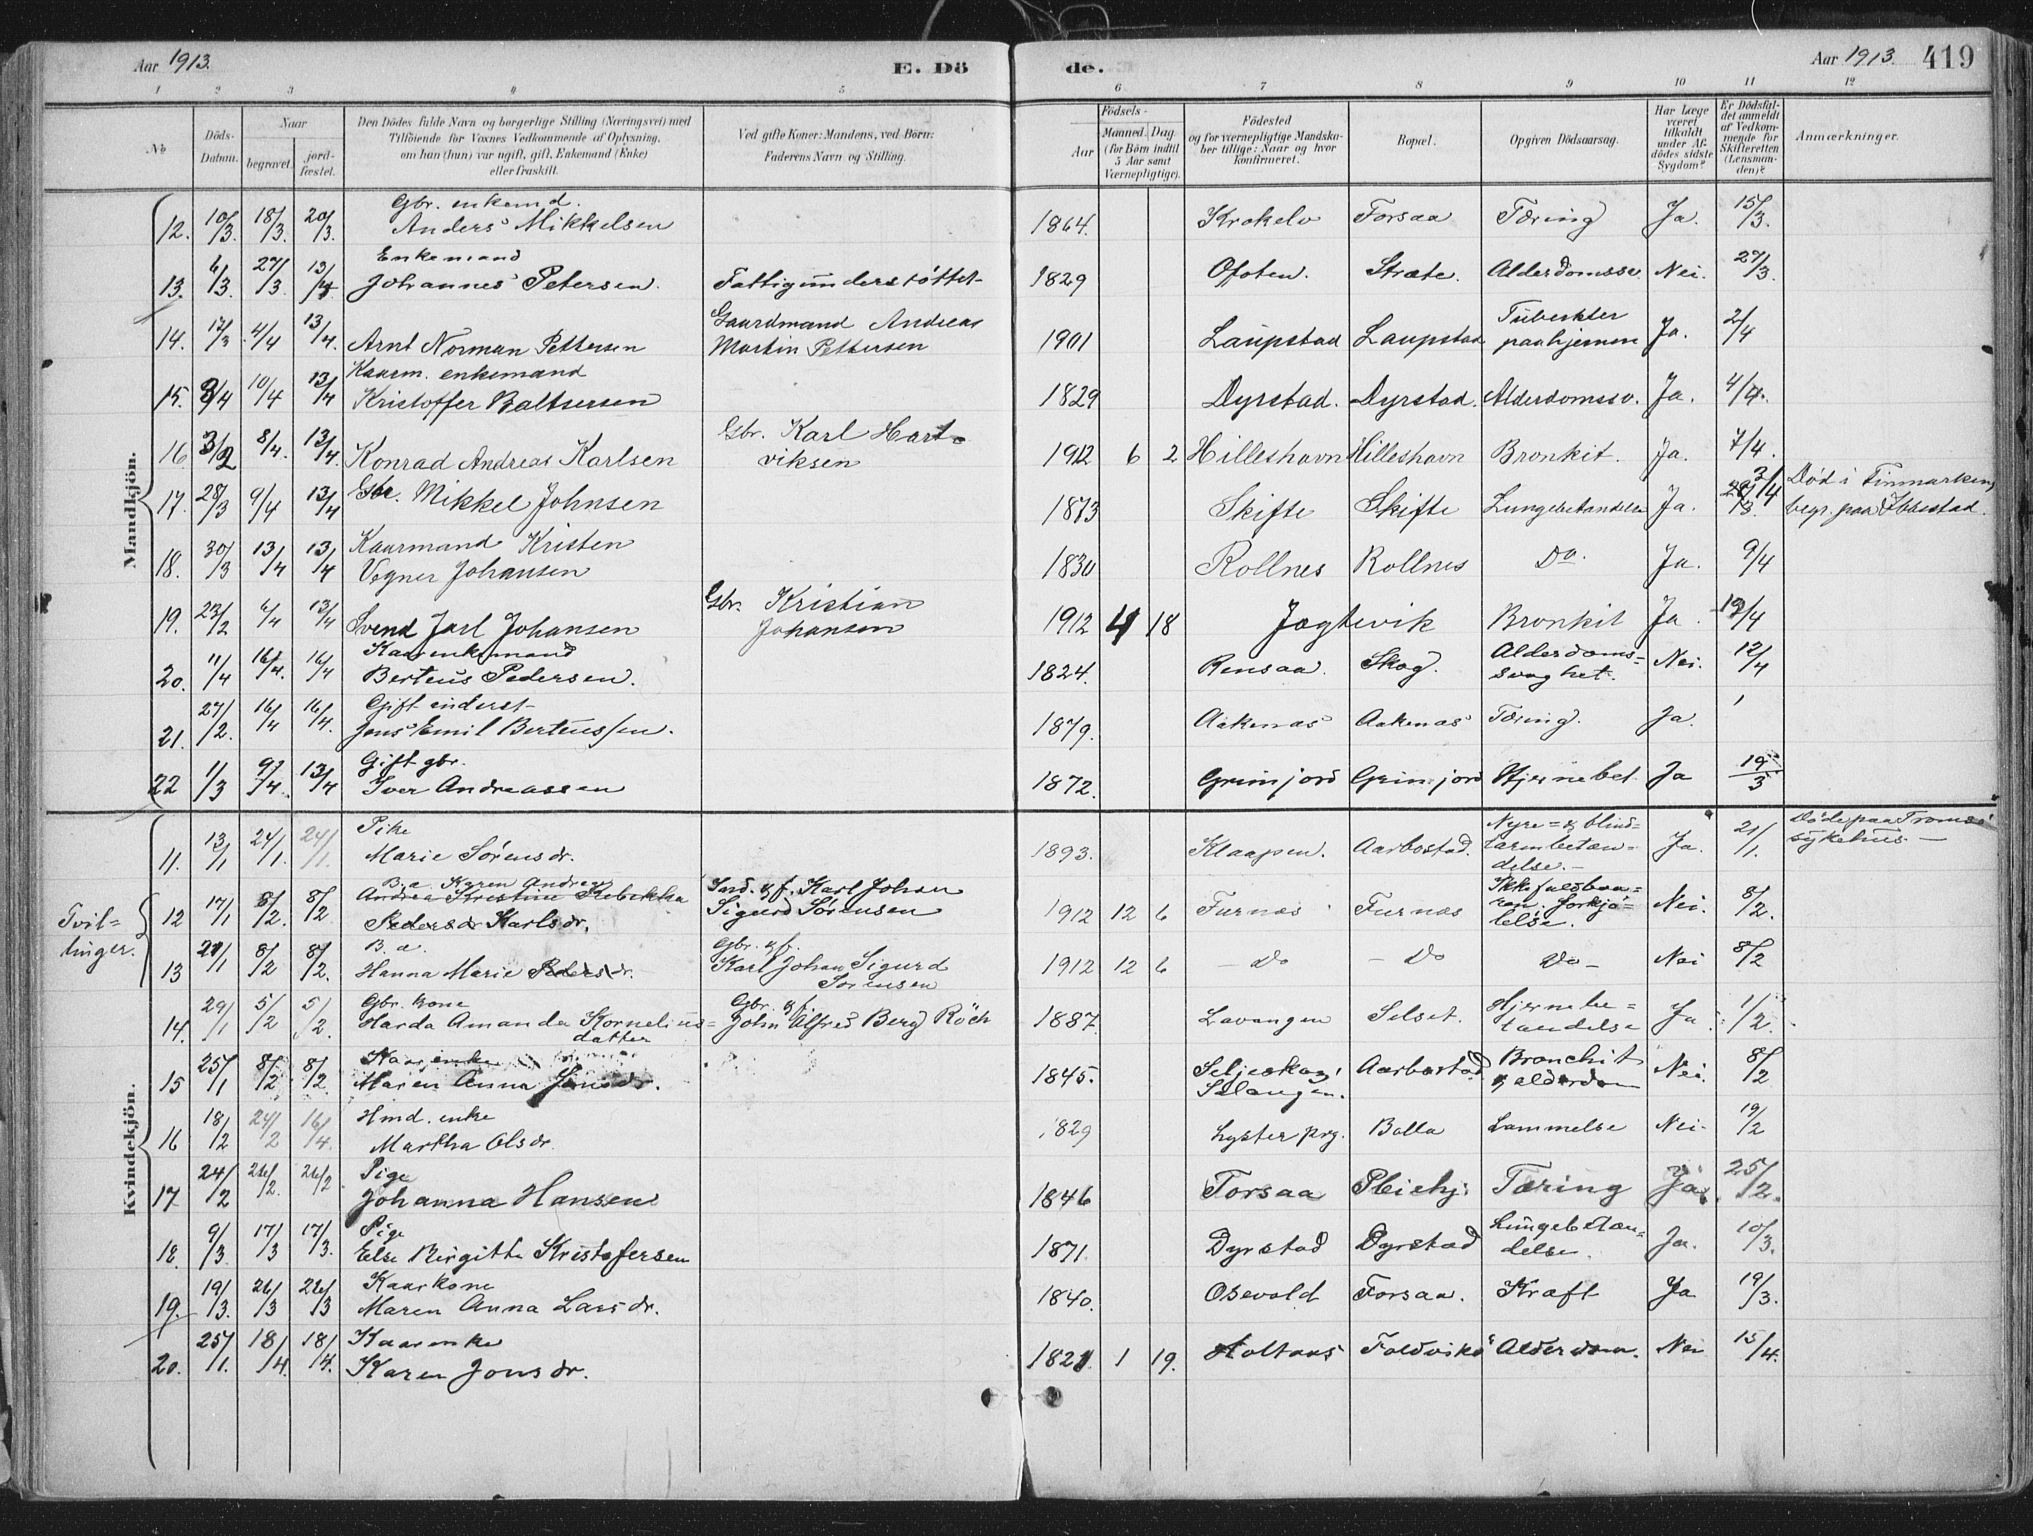 Aar 1913. E. Dö de. Aar 1913. 419
1 2 3 4 5 6 7 8 9 10 11 12
No
Döds-Datum.
Naar
begravet.
jord-fæstet.
Den Dödes fulde Navn og borgerlige Stilling (Næringsvei) med
Tilföiende for Voxnes Vedkommende af Oplysning,
om han (hun) var ugift, gift, Enkemand (Enke)
eller fraskilt.
Ved gifte Koner: Mandens, ved Börn:
Faderens Navn og Stilling.
Aar
Födsels-
Maaned. Dag.
(for Börn indtil
5 Aar samt
Værnepligtige).
Födested
og for værnepligtige Mandska-
ber tillige: Naar og hvor
konfirmeret.
Bopæl.
Opgiven Dödsaarsag.
Har Læge
været
tilkaldt
under Af-
dödes sidste
Sygdom?
Er Dödsfal-
det anmeldt
af Vedkom-
mende for
Skifteretten
(Lensman-
den)?
Anmærkninger.
Mandkjön.
Gbr. enkemd.
12. 10/3. 18/3. 20/3. Anders Mikkelsen 1864. Krokelv Forsaa Tæring Ja. 15/3.
Enkemand
13. 6/3. 27/3 13/4 Johannes Petersen. Fattigunderstöttet 1829 Ofoten. Stræte. Alderdomssv. Nei. 27/3.
Gaardmand Andreas
14. 17/3 4/4 13/4. Arnt Norman Pettersen Martin Pettersen 1901 Laupstad Laupstad Tuberkler
paa hjernen Ja. 2/4
Kaarm. enkemand
15. 3/4 10/4 13/4 Kristoffer Baltsersen 1829 Dyrstad. Dyrstad. Alderdomssv. Ja. 4/4.
Gbr. Karl Hart-
16 3/2 8/4. 13/4. Konrad Andreas Karlsen viksen 1912 6 2 Hilleshavn Hilleshavn Bronkit. Ja. 7/4.
17. 28/3 9/4 13/4 Gbr. Mikkel Johnsen 1873 Skifte Skifte Lungebetændelse Ja. 3/4 Död i Finmarken,
begr. paa Ibbestad.
Kaarmand Kristen
18. 30/3 13/4 13/4 Vegner Johansen 1830 Rollnes Rollnes Do. Ja. 9/4
Gbr. Kristian
19. 23/2 6/4 13/4 Svend Jarl Johansen Johansen 1912 4 18 Jagtevik Bronkit Ja. 12/4
Kaarenkemand
20. 11/4 16/4. 16/4 Berteus Pedersen. 1824. Rensaa. Skog. Alderdoms-
svaghet. Nei. 12/4
Gift inderst
21. 27/2. 16/4 16/4. Jens Emil Berteussen. 1879. Aakenæs Aakenæs Tæring. Ja.
Gift gbr.
22 1/3 9/4. 13/4 Iver Andreassen 1872. Grimjord Grimjord Hjernebet. Ja 19/3
Kvindekjön.
Pike
11. 13/1 24/1. 24/1. Marie Sörensdr. 1893. Klaapen. Aarbostad. Nyre- & blind-
tarmbetæn-
delse. Ja. 21/1. Döde paa Tromsö
sykehus
Tvil-
linger.
B. a. Karen Andrea
Andrea Kristine Rebekka
12 17/1 8/2. 8/2 Pedersdr Karlsdr. Ind. & f. Karl Johan
Sigurd Sörensen 1912 12 6 Furnæs Furnæs Ikke fuldbaa-
ren. Forkjö-
lelse. Nei. 8/2.
B. a.
13 21/1 8/2 8/2. Hanna Marie Pedersdr. Gbr. & f.
Karl Johan Sigurd
Sörensen 1912 12 6 Do Do Do Nei 8/2
Gbr. kone
14. 29/1 5/2 5/2 Harda Amanda Kornelius-
datter Gbr. & f.
John Alfred Berg Röch 1887 Lavangen Selset. Hjernebe-
tændelse Ja 1/2.
Kaarenke
15 25/1 8/2 8/2 Maren Anna Jensdr. 1845. Seljeskog,
Salangen. Aarbostad Bronchit
& alderdom Nei. 8/2
Hmd. enke
16 18/2 24/2 16/4. Martha Olsdr. 1829 Lyster prg. Bolla Lammelse Nei. 19/2
Pige
17 24/2 26/2. 26/2 Johanna Hansen 1846 Forsaa Pleiehj. Tæring Ja. 25/2.
Pige
18. 9/3. 17/3 17/3. Else Birgitte Kristofersen 1871. Dyrstad Dyrstad Lungebetæn-
delse. Ja. 10/3.
Kaarkone
19. 19/3. 26/3 26/3 Maren Anna Larsdr. 1840. Osevold Forsaa. Kræft Ja 19/3.
Kaarenke
20. 25/1. 18/4. 18/4. Karen Jonsdr. 1821. 1 19. Holtaas Foldvik Alderdom. Nei 15/4.